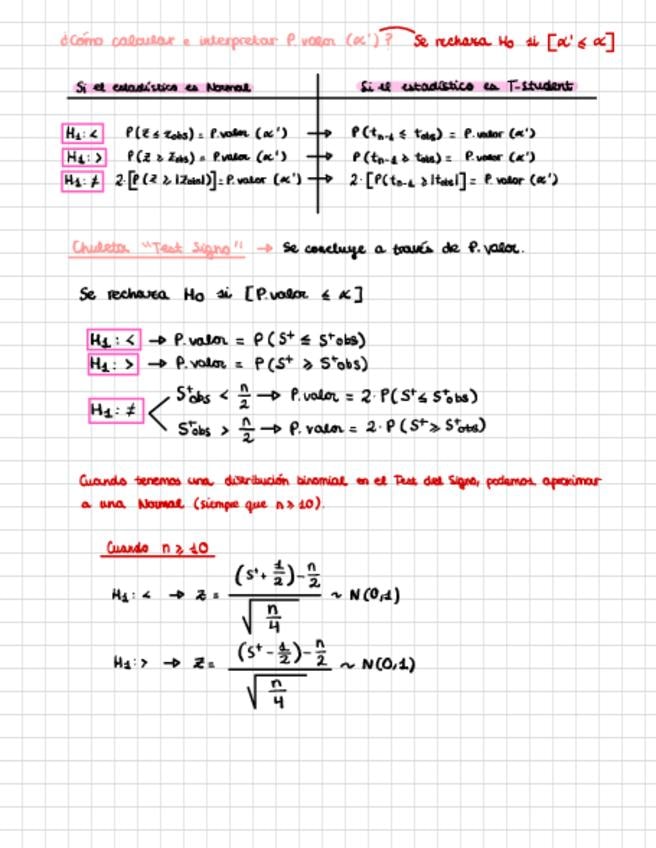 ¿Cómo calcular e interpretar P.valor (α')? Se rechaza Ho si [α' ≤ α]
Si el estadístico es Normal
Si el estadístico es T-Student
H₁: < P(Z ≤ Zobs) = P.valor (α') → P(tn-1 ≤ tobs) = P.valor (α')
H₁: > P(Z ≥ Zobs) = P.valor (α') → P(tn-1 ≥ tobs) = P.valor (α')
H₁: ≠ 2·[P(Z ≥ |Zobs|)] = P.valor (α') → 2·[P(tn-1 ≥ |tobs|] = P.valor (α')
Chuleta "Test Signo" → Se concluye a través de P.valor.
Se rechaza Ho si [P.valor ≤ α]
H₁: < → P.valor = P(S⁺ ≤ S⁺obs)
H₁: > → P.valor = P(S⁺ ≥ S⁺obs)
H₁: ≠
S⁺obs < n/2 → P.valor = 2·P(S⁺ ≤ S⁺obs)
S⁺obs > n/2 → P.valor = 2·P(S⁺ ≥ S⁺obs)
Cuando tenemos una distribución binomial en el Test del Signo, podemos aproximar
a una Normal (siempre que n ≥ 10).
Cuando n ≥ 10
H₁: < → Z = ((S⁺ + 1/2) - n/2) / √(n/4) ~ N(0,1)
H₁: > → Z = ((S⁺ - 1/2) - n/2) / √(n/4) ~ N(0,1)